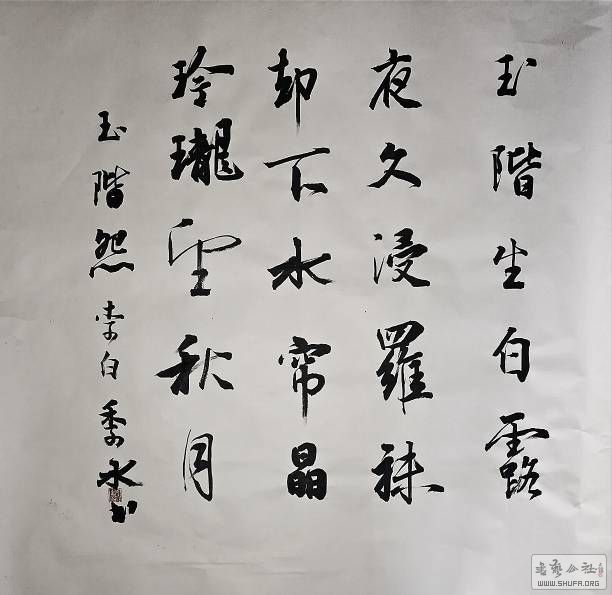 玉階生白露
夜久浸羅袜
却下水帘晶
玲瓏望秋月
玉階怨 李白 水书
書藝公社
WWW.SHUFA.ORG